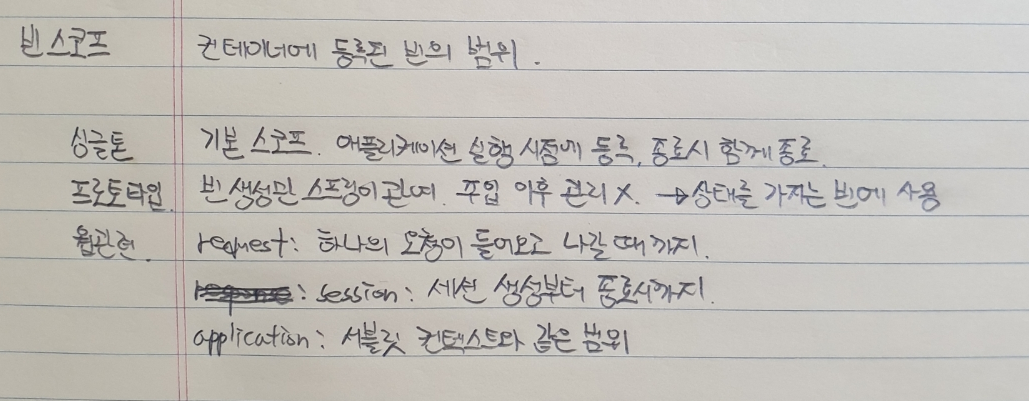 빈 스코프 컨테이너에 등록된 빈의 범위.
싱글톤 기본 스코프. 애플리케이션 실행 시점에 등록, 종료시 함께 종료.
프로토타입. 빈 생성만 스프링이 관여. 주입 이후 관리 X. → 상태를 가지는 빈에 사용
웹관련. request: 하나의 요청이 들어오고 나갈 때 까지.
: session: 세션 생성부터 종료시까지.
application: 서블릿 컨텍스트와 같은 범위